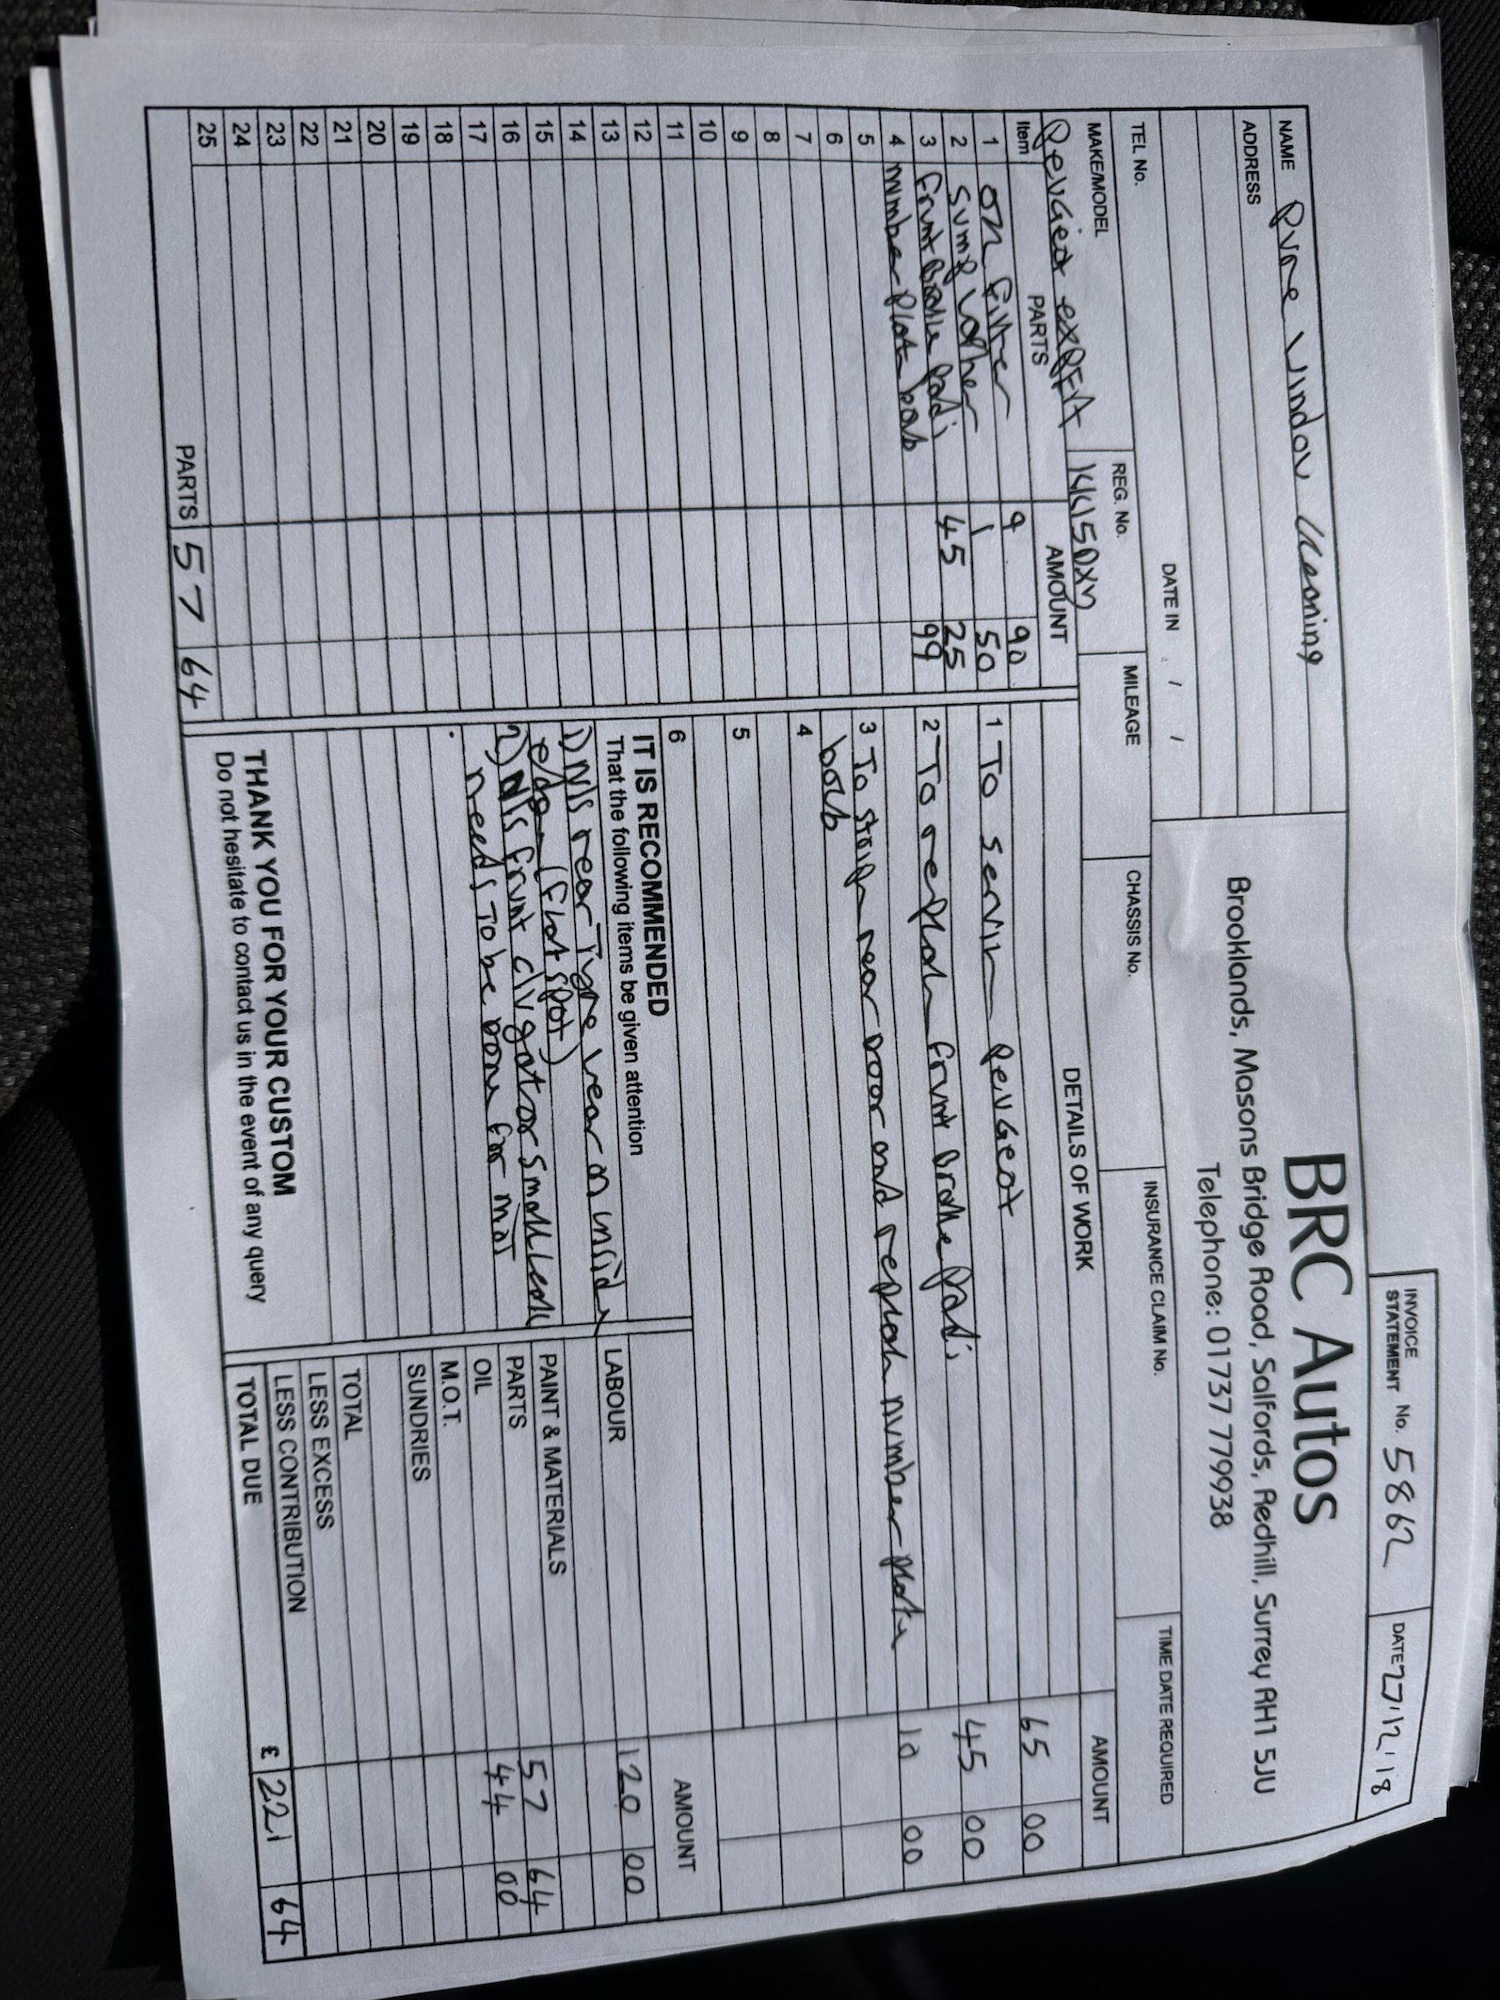 INVOICE STATEMENT No. 5862 DATE 27.12.18
BRC Autos
Brooklands, Masons Bridge Road, Salfords, Redhill, Surrey RH1 5JU
Telephone: 01737 779938
NAME Pure Window Cleaning
ADDRESS
DATE IN / /
TEL No.
MAKE/MODEL REG. No. MILEAGE CHASSIS No. INSURANCE CLAIM No. TIME DATE REQUIRED
Peugeot EXPERT
Item PARTS AMOUNT
1 oil filter 9 90
2 sump washer 1 50
3 frunt brake pads 45 25
4 number plate boab 99
5
6
7
8
9
10
11
12
13
14
15
16
17
18
19
20
21
22
23
24
25
PARTS 57 64
DETAILS OF WORK AMOUNT
1 To service Peugeot 65 00
2 To replace frunt brake pads 45 00
3 To strip rear door and replace number plate 10 00
boab
4
5
6
IT IS RECOMMENDED
That the following items be given attention
1) N/S rear Tyre wear on inside
edge (flat spot)
2) N/S frunt cv gator small leak
needs To be done for mot
THANK YOU FOR YOUR CUSTOM
Do not hesitate to contact us in the event of any query
AMOUNT
LABOUR 120 00
PAINT & MATERIALS
PARTS 57 64
OIL 44 00
M.O.T.
SUNDRIES
TOTAL
LESS EXCESS
LESS CONTRIBUTION
TOTAL DUE £ 221 64